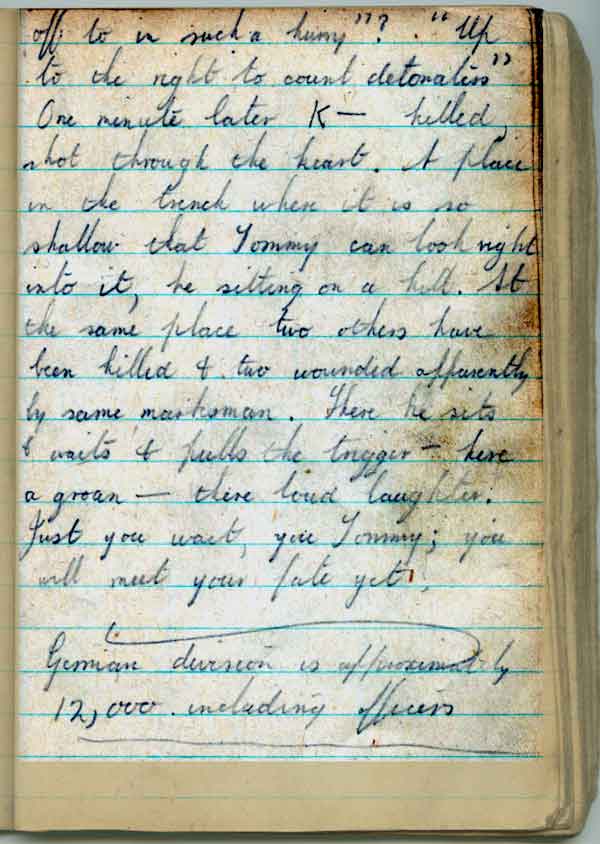 off to in such a hurry"? "Up
to the right to count detonators"
One minute later K— killed,
shot through the heart. A place
in the trench where it is so
shallow that Tommy can look right
into it, he sitting on a hill. At
the same place two others have
been killed & two wounded apparently
by same marksman. There he sits
& waits & pulls the trigger — here
a groan — there loud laughter.
Just you wait, you Tommy; you
will meet your fate yet.
German division is approximately
12,000 including officers